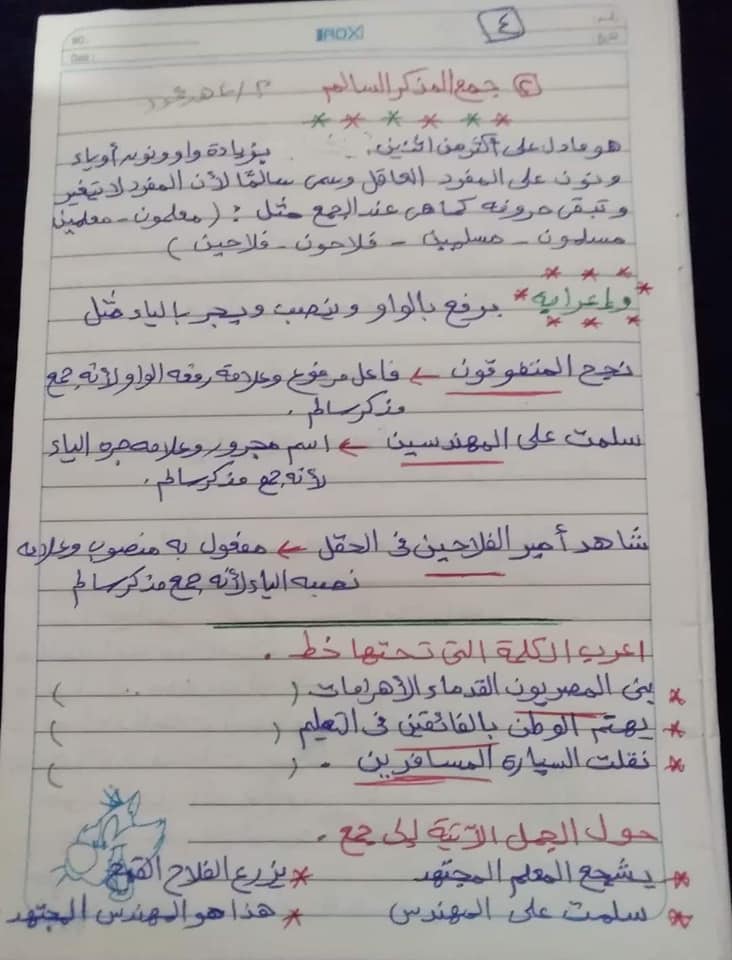 ٤
٢ جمع المذكر السالم
هو ما دل على أكثر من اثنين. بزيادة واو ونون أو ياء
ونون على المفرد العاقل وسمى سالمًا لأن المفرد لا تتغير
وتبقى حروفه كما هى عند الجمع مثل : ( معلمون - معلمين
مسلمون - مسلمين - فلاحون - فلاحين )
وإعرابه يرفع بالواو وينصب ويجر بالياء مثل
نجح المتفوقون ← فاعل مرفوع وعلامة رفعه الواو لأنه جمع
مذكر سالم .
سلمت على المهندسين ← اسم مجرور وعلامة جره الياء
لأنه جمع مذكر سالم .
شاهد أمير الفلاحين فى الحقل ← مفعول به منصوب وعلامة
نصبه الياء لأنه جمع مذكر سالم
اعرب الكلمة التى تحتها خط .
* بنى المصريون القدماء الأهرامات. ( )
* يهتم الوطن بالفائقين فى التعليم ( )
* نقلت السيارة المسافرين . ( )
حول الجمل الآتية إلى جمع .
* يشجع المعلم المجتهد * يزرع الفلاح القمح
* سلمت على المهندس * هذا هو المهندس المجتهد